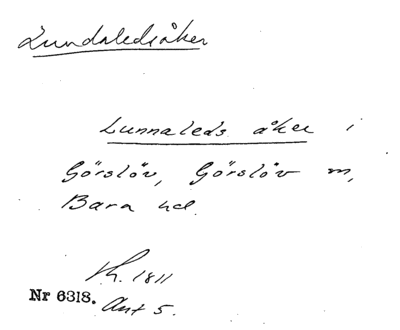 Lundaledsåker
Lunnaleds åker i
Görslöv, Görslöv m,
Bara hd.
Sh. 1811
Nr 6318. Akt 5.